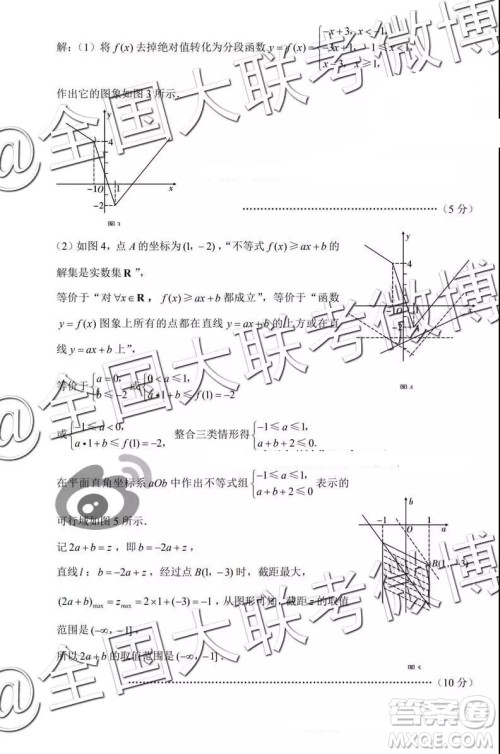 解：（1）将 f(x) 去掉绝对值转化为分段函数 y = f(x) = { -x+3, x<-1, -3x+1, -1≤x<1, x-3, x≥1,
作出它的图象如图 3 所示．
y
4
-1 O 1 x
-2
图 3
（5 分）
（2）如图 4，点 A 的坐标为(1, -2)，“不等式 f(x) ≥ ax + b 的
解集是实数集 R ”，
等价于“对 ∀x∈R，f(x) ≥ ax + b 都成立”，等价于“函数
y = f(x) 图象上所有的点都在直线 y = ax + b 的上方或在直
线 y = ax + b 上”，
y
4
-1 O
图 4
等价于 { a = 0, b ≤ -2 或 { 0 < a ≤ 1, a•1 + b ≤ f(1) = -2
或 { -1 ≤ a < 0, a•1 + b ≤ f(1) = -2， 整合三类情形得 { -1 ≤ a ≤ 1, a + b + 2 ≤ 0.
在平面直角坐标系 aOb 中作出不等式组 { -1 ≤ a ≤ 1, a + b + 2 ≤ 0 表示的
可行域如图 5 所示．
记 2a + b = z，即 b = -2a + z，
直线 l：b = -2a + z，经过点 B(1, -3) 时，截距最大，
(2a + b)max = zmax = 2×1 + (-3) = -1，从图形可知，截距 z 的取值
范围是 (-∞, -1]．
所以 2a + b 的取值范围是 (-∞, -1]．
b
-1 O 1 a
B(1, -3)
（10 分）
@全国大联考微博
@全国大联考微博
@全国大联考微博
答案圈
MXQE.COM